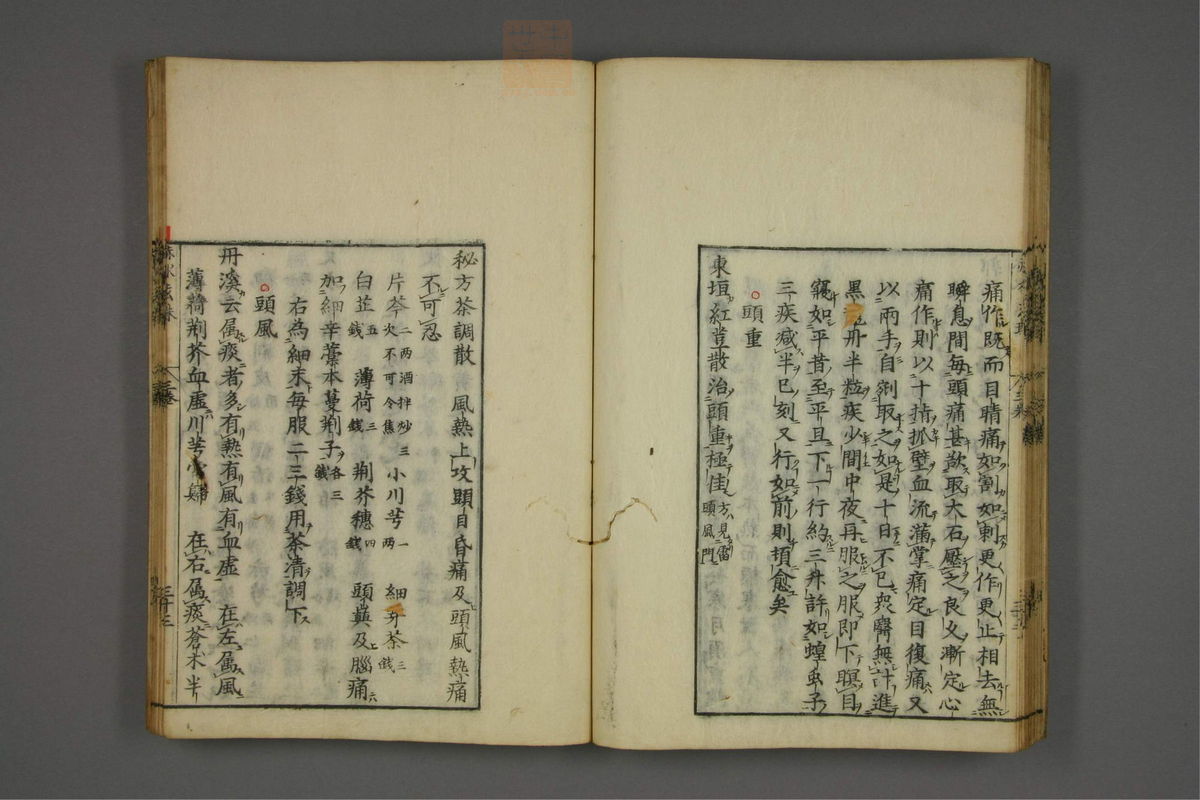 痛作既而目睛痛如割如刺更作更止相去無
瞬息間每頭痛甚欲取大石壓之良久漸定心
痛作則以十指抓壁血流滿掌痛定目復痛又
以兩手自剜取之如是十日不已衆醫無計進
黑丹半粒疾少間中夜再服之服即下瞑目
寢如平昔至平旦下一行約三升許如蝗虫子
三疾減半已刻又行如前則頓愈矣
頭重
東垣紅豆散治頭重極佳方見雷頭風門
秘方茶調散 風熱上攻頭目昏痛及頭風熱痛
不可忍
片芩二兩酒拌炒三次不可令焦 小川芎一兩 細芽茶三錢
白芷五錢 薄荷三錢 荊芥穗四錢 頭巔及腦痛
加細辛藁本蔓荊子各三錢
右為細末每服二三錢用茶清調下
頭風
丹溪云属痰者多有熱有風有血虛 在左属風
薄荷荊芥血虛川芎當歸 在右属痰蒼朮半
三卷
三十三